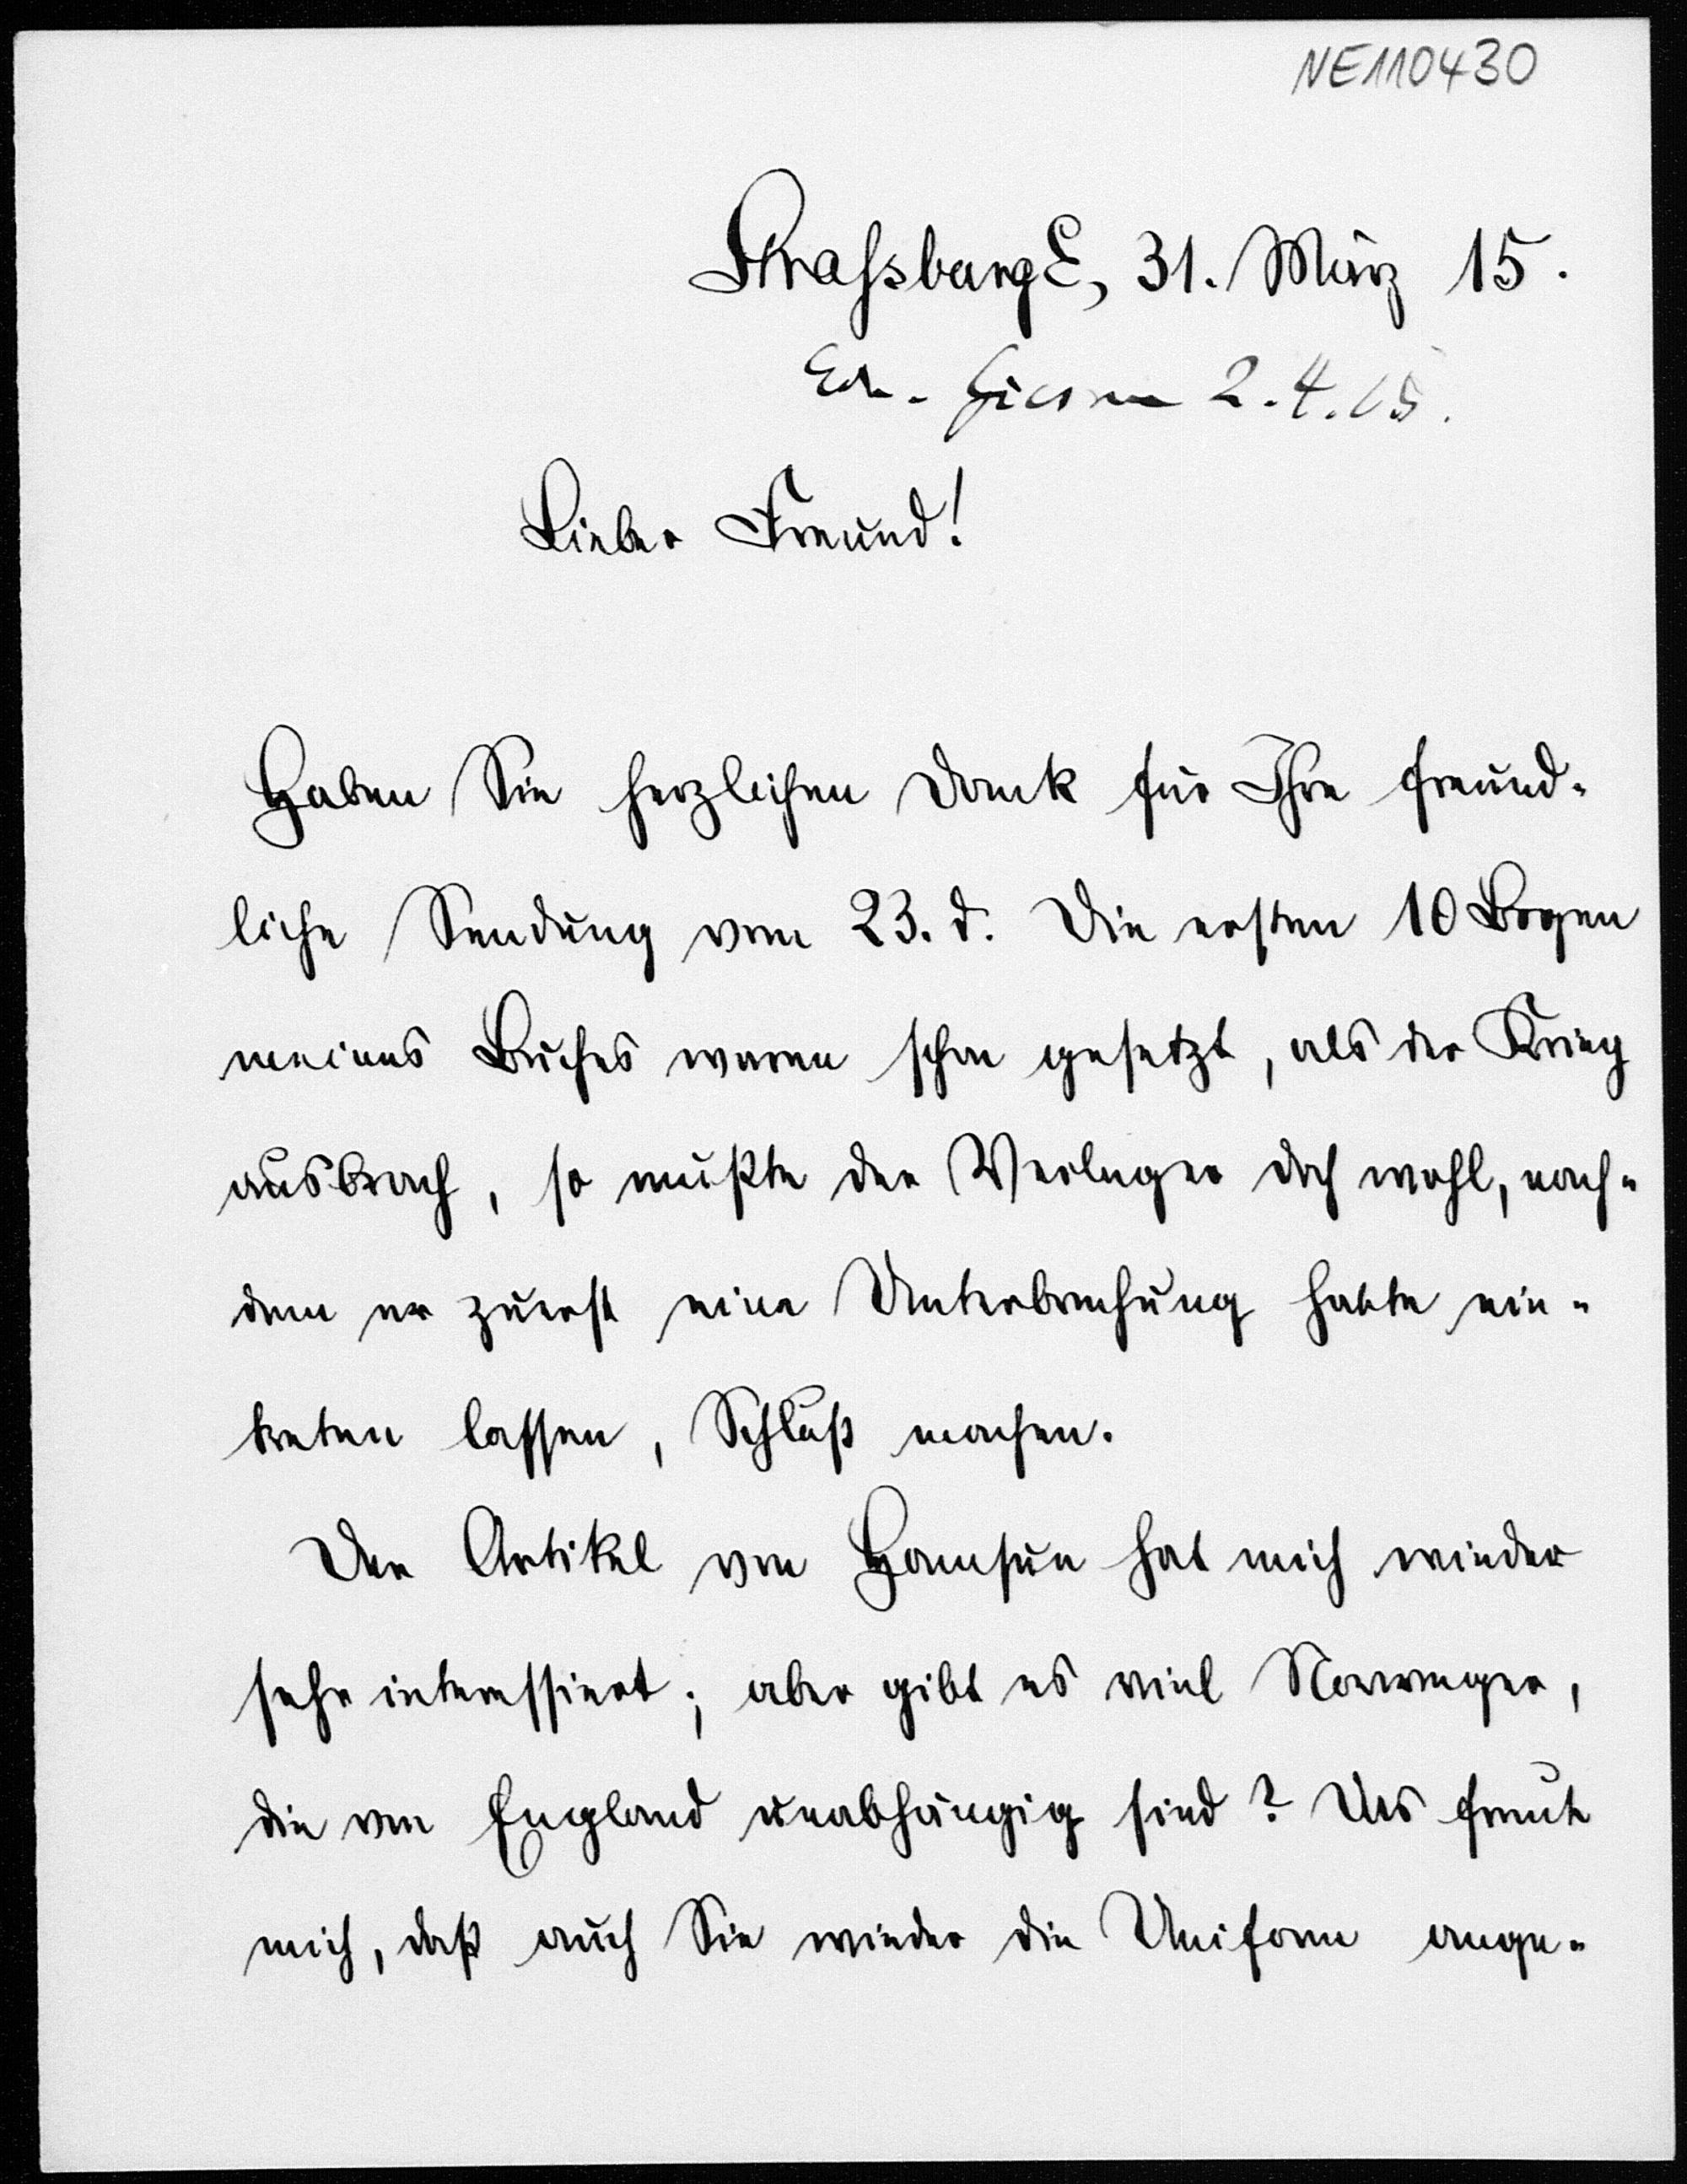 NE110430
Strassburg E, 31. März 15.
2.4.15.
Lieber Freund!
Haben Sie herzlichen Dank für Ihre freund-
liche Sendung vom 23. d. Die ersten 10 Bogen
meines Buches waren schon gesetzt, als der Krieg
ausbrach, so mußte der Verleger doch wohl, nach-
dem er zuerst eine Unterbrechung hatte ein-
treten lassen, Schluß machen.
Der Artikel von Hamsun hat mich wieder
sehr interessiert; aber gibt es viel Norweger,
die von England unabhängig sind? Uns freute
mich, daß auch Sie wieder die Uniform ange-